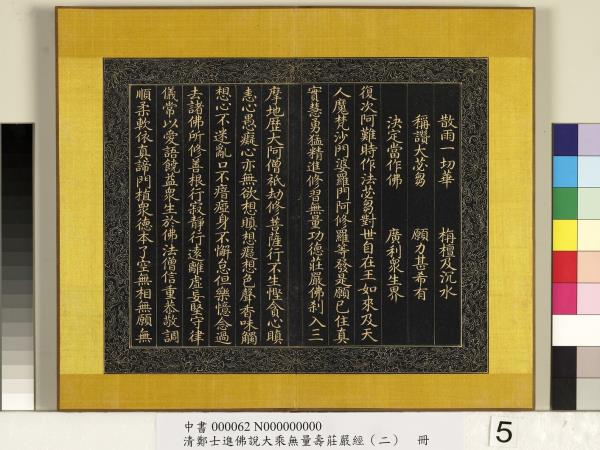 散雨一切華　栴檀及沉水
稱讚大苾芻　願力甚希有
決定當作佛　廣利衆生界
復次阿難時作法苾芻對世自在王如來及天
人魔梵沙門婆羅門阿修羅等發是願已住真
實慧勇猛精進修習無量功德莊嚴佛刹入三
摩地歷大阿僧祇劫修菩薩行不生慳貪心瞋
恚心愚癡心亦無欲想瞋想癡想色聲香味觸
想心不迷亂口不瘖瘂身不懈怠但樂憶念過
去諸佛所修善根行寂靜行遠離虛妄堅守律
儀常以愛語饒益衆生於佛法僧信重恭敬調
順柔軟依真諦門植衆德本了空無相無願無
中書 000062 N000000000
清鄭士進佛說大乘無量壽莊嚴經（二）　冊
5